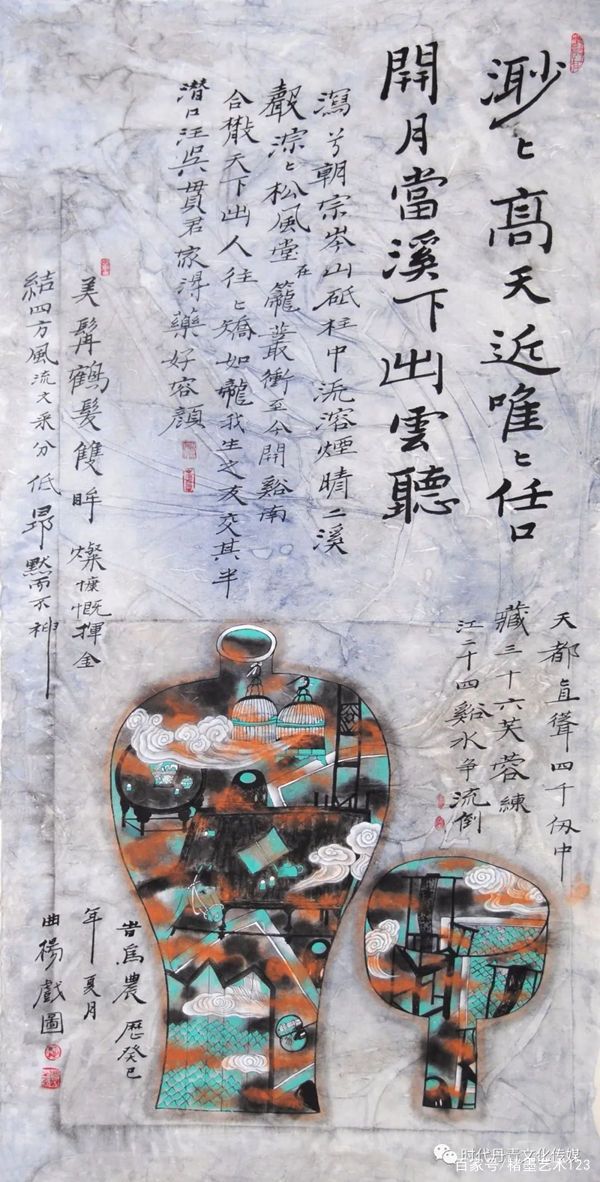 渺〻高天近唯〻任口
開月當溪下出雲聽
天都直聳四千仭中
藏三十六芙蓉練
江二十四谿水争流倒
瀉兮朝宗岑山砥柱中流溶煙晴二溪
淙〻松風堂在籠叢衝至公開谿南
合散天下出人往〻矯如龍我生之友交其半
潛口汪吳貫君家得藥好容顔
美髯鶴髮雙眸燦慷慨揮金
結四方風流文采分低昻默而不神
旹爲農歷癸巳
年夏月
曲楊戲圖
时代丹青文化传媒
百家号/楮墨艺术123